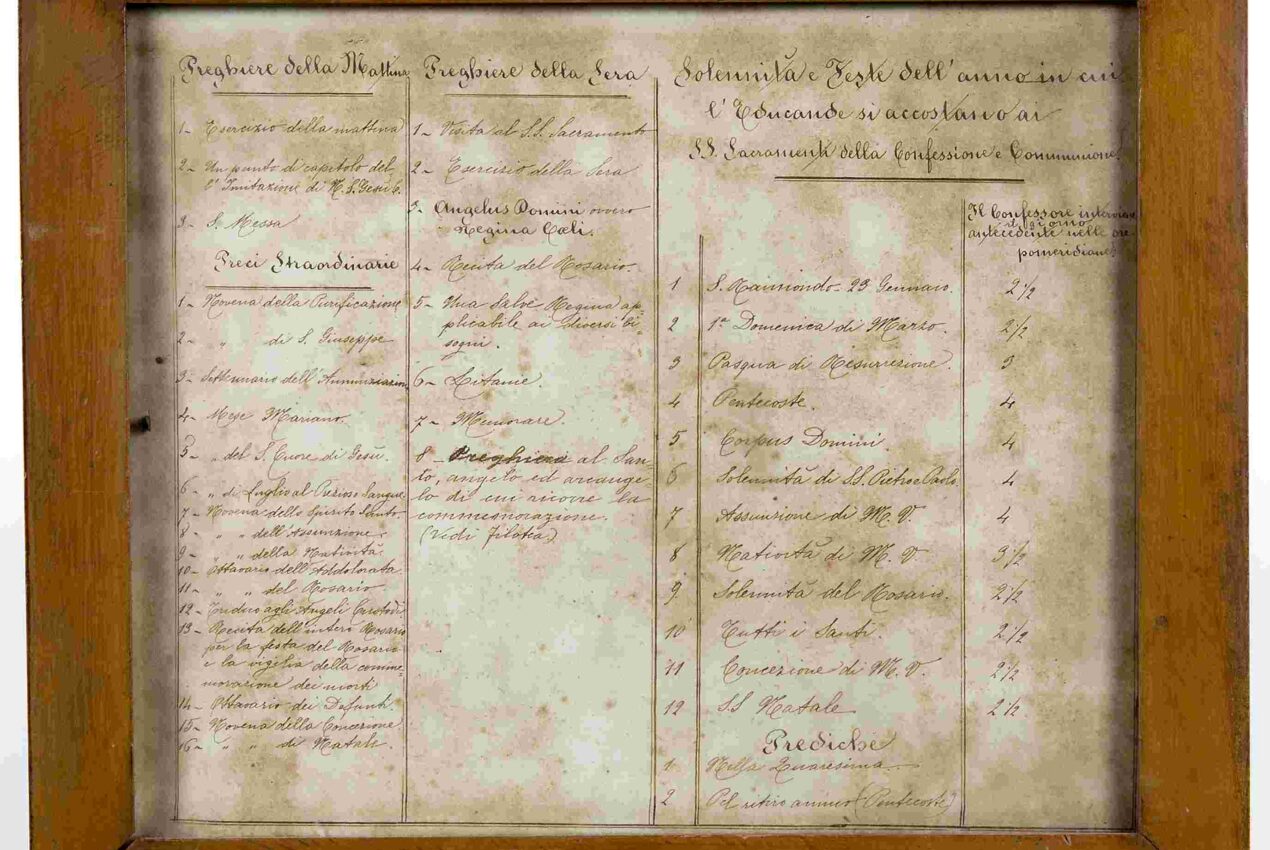 Preghiere della Mattina
1- Esercizio della mattina
2- Un punto di capitolo del
l'Imitazione di N. S. Gesù C.
3- S. Messa
Preci Straordinarie
1- Novena della Purificazione
2- " di S. Giuseppe
3- Settenario dell'Annunziazion
4- Mese Mariano.
5- " del S. Cuore di Gesù.
6- " di Luglio al Prezioso Sangue
7- Novena dello Spirito Santo.
8- " " dell'Assunzione.
9- " " della Natività.
10- Ottavario dell'Addolorata
11- " " del Rosario
12- Triduo agli Angeli Custodi
13- Recita dell'intero Rosario
per la festa del Rosario
e la vigilia della comme-
morazione dei morti
14- Ottavario dei Defunti.
15- Novena della Concezione
16- " " di Natale.
Preghiere della Sera
1- Visita al S.S. Sacramento
2- Esercizio della Sera
3- Angelus Domini ovvero
Regina Cœli.
4- Recita del Rosario.
5- Una Salve Regina ap-
plicabile ai diversi bi-
sogni.
6- Litanie.
7- Memorare.
8- Preghiera al San-
to, angelo ed arcange-
lo di cui ricorre la
commemorazione.
(Vedi Filotea)
Solennità e Feste dell'anno in cui
l'Educande si accostano ai
SS. Sacramenti della Confessione e Communione.
Il Confessore interviene
il giorno
antecedente nelle ore
pomeridiane
1 S. Raimondo - 23 Gennaro. 2 1/2
2 1ª Domenica di Marzo. 2 1/2
3 Pasqua di Resurrezione. 3
4 Pentecoste. 4
5 Corpus Domini. 4
6 Solennità di SS. Pietro e Paolo. 4
7 Assunzione di M. V. 4
8 Natività di M. V. 3 1/2
9 Solennità del Rosario. 2 1/2
10 Tutti i Santi. 2 1/2
11 Concezione di M. V. 2 1/2
12 SS Natale 2 1/2
Prediche
1 Nella Quaresima
2 Pel ritiro annuo (Pentecoste)